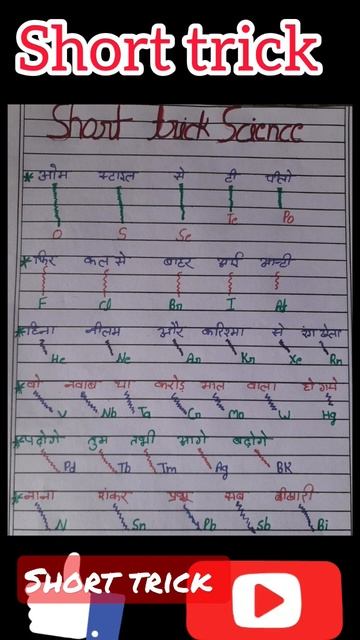 Short trick
Short trick Science
* ओम स्टाइल से टी पीलो
Te Po
O S Se
* फिर कल से बाहर आई आन्टी
F Cl Bn I At
* हिना नीलम और करिश्मा से रंग खेला
He Ne An Kn Xe Rn
* वो नवाब था करोड़ मात वाला हो गये
V Nb Ta Cn Mo W Hg
* पढोगे तुम तभी आगे बढोगे
Pd Tb Tm Ag BK
* नाना शंकर प्रभू सब बीखारी
N Sn Pb Sb Bi
SHORT TRICK